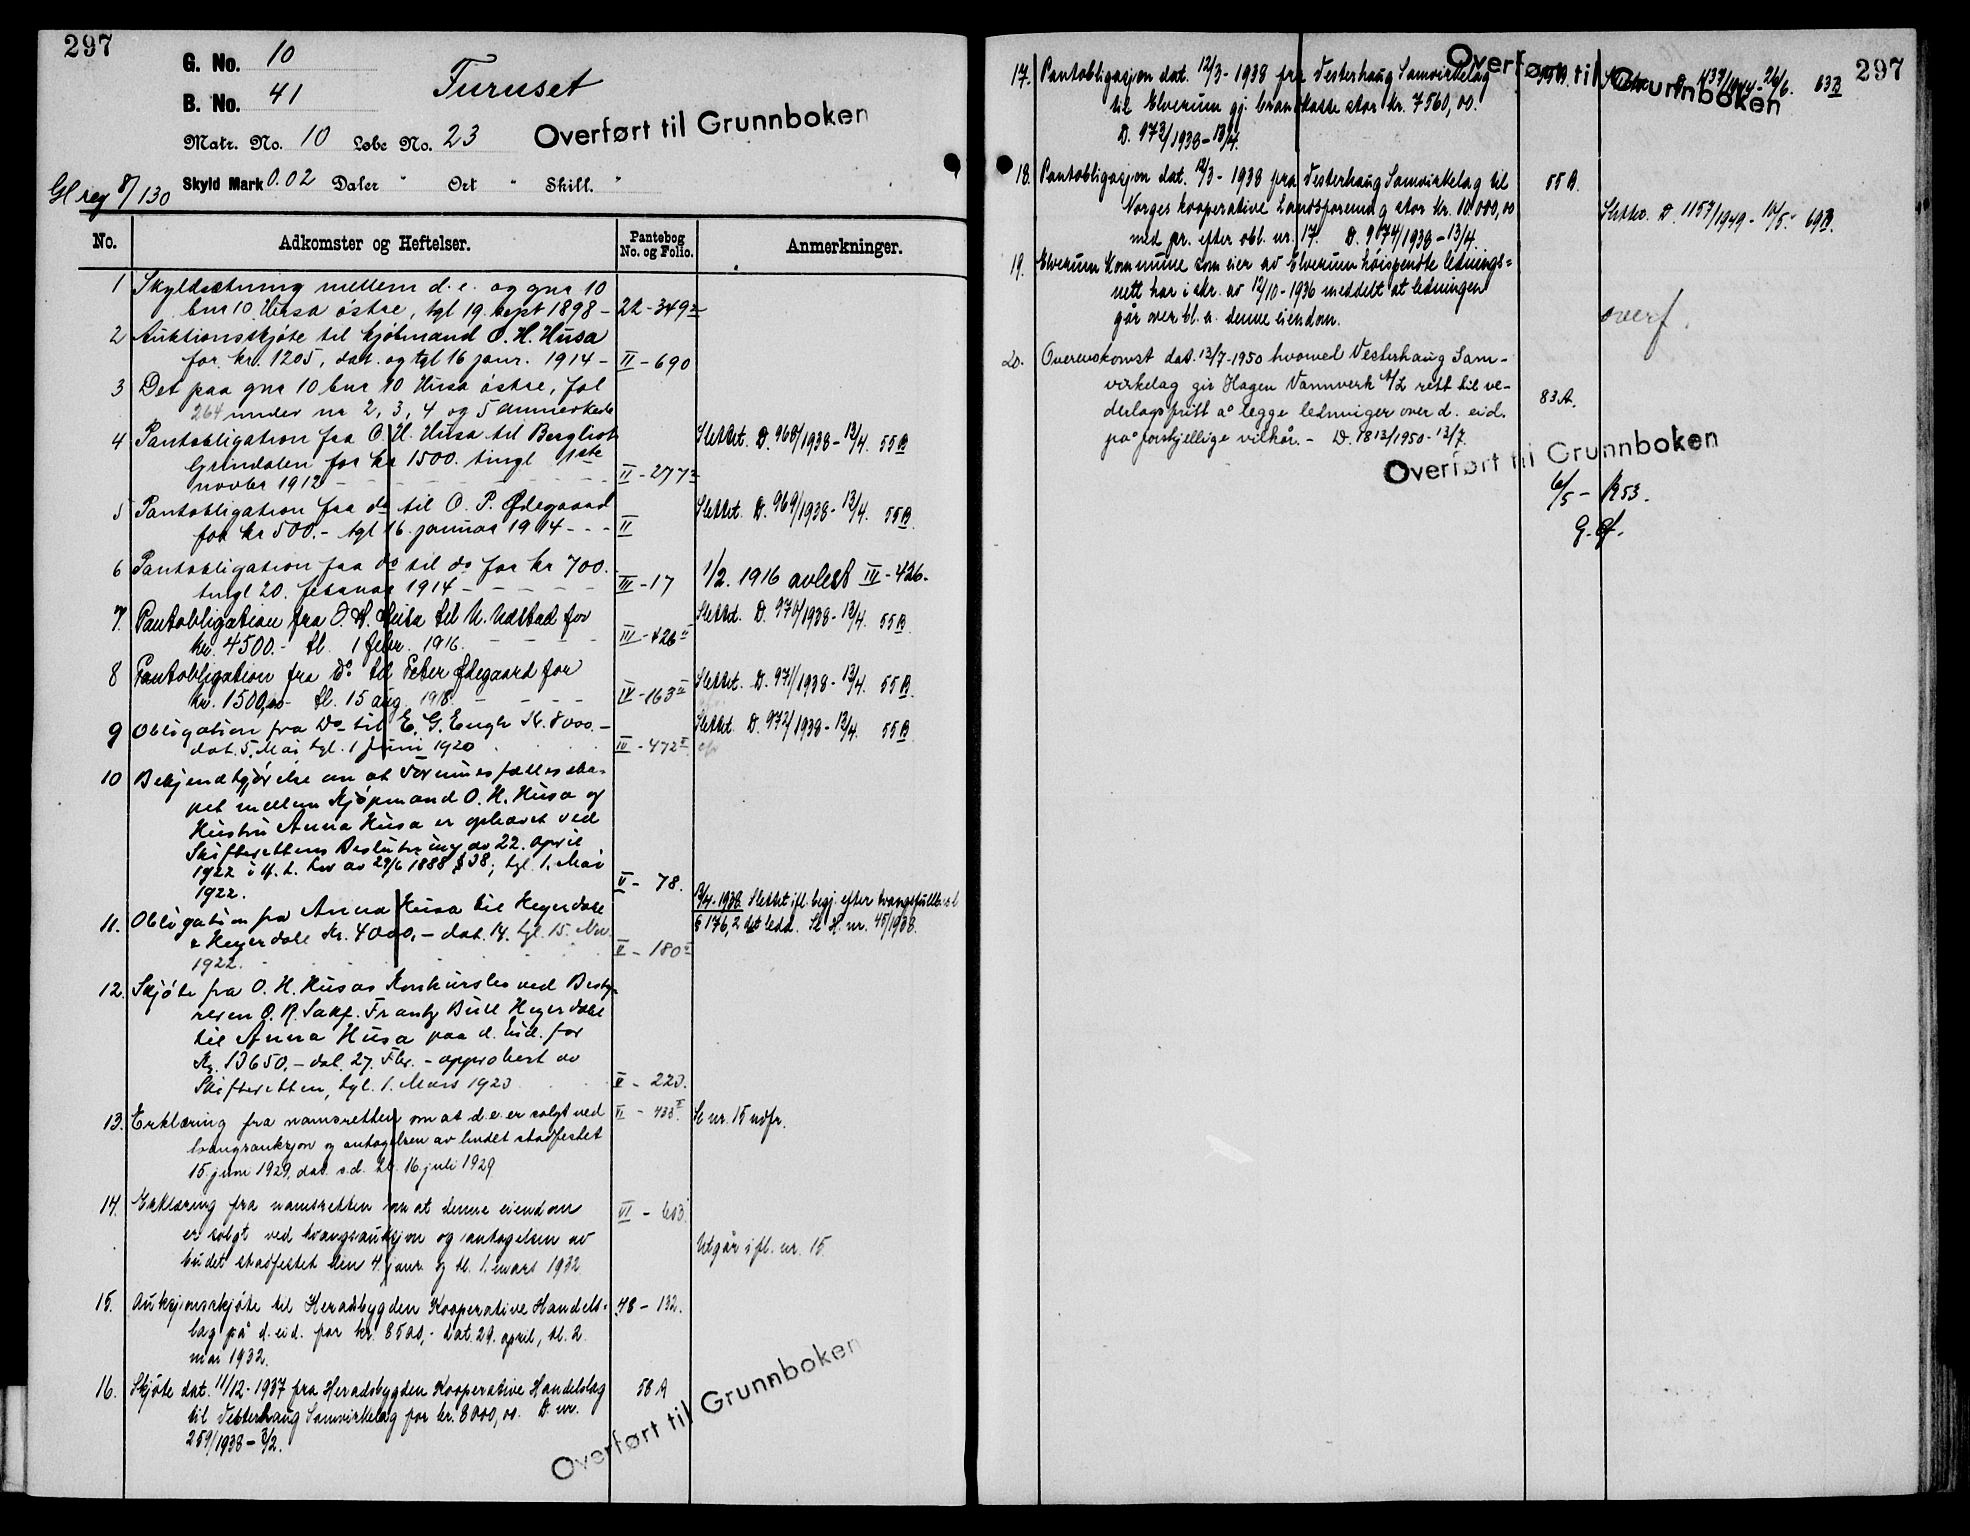 297
G. No. 10
B. No. 41
Furuset
Matr. No. 10 Løbe No. 23
Overført til Grunnboken
Skyld Mark 0.02 Daler " Ort " Skill. "
Gl reg 8/130
No. Adkomster og Heftelser. Pantebog No. og Folio. Anmerkninger.
1 Skyldsætning mellem d. e. og gnr 10
bnr 10 Husa østre, tgl 19 sept 1898 - 22-349
2 Auktionsskjøte til kjøbmand O. H. Husa
for kr. 1205, dat. og tgl 16 janr. 1914 - II-690
3 Det paa gnr 10 bnr 10 Husa østre, fol
264 under nr 2, 3, 4 og 5 anmerkede
4 Pantobligation fra O. H. Husa til Bergliot Slettet. D. 968/1938 - 13/4. 55B
Grindalen for kr 1500. tingl 1ste
novbr 1912 - II-277
5 Pantobligation fra do til O. P. Ødegaard Slettet. D. 969/1938 - 13/4. 55B.
for kr 500.- tgl 16. januar 1914 - - - II
6 Pantobligation fra do til do for kr 700.
tingl 20. februar 1914 - III-17 1/2. 1916 avlest IV-426.
7. Pantobligation fra O. H. Husa til N. Udstad for Slettet. D. 970/1938 - 13/4. 55B
kr. 4500.- tl. 1 febr. 1916. III-426
8 Pantobligation fra Do til Peter Ødegaard for Slettet. D. 971/1938 - 13/4. 55B
kr. 1500,00 tl. 15 aug. 1918. IV-163
9 Obligation fra Do til E. G. Engh Kr. 8000.- Slettet D. 972/1938 - 13/4. 55B
dat. 5. Mai, tgl. 1 Juni 1920 IV-472
10 Bekjendtgjørelse om at Formuesfællesska-
pet mellem Kjøpmand O. H. Husa og
Hustru Anna Husa er ophævet ved
Skifterettens Beslutning av 22. april
1922 i H. t. Lov av 29/6 1888 § 38, tgl. 1. Mai
1922. V - 78.
11. Obligation fra Anna Husa til Heyerdahl 13/4-1938. Slettet ifl. begj. efter tvangsfullb.
& Heyerdahl Kr. 4000,- dat. 14. tgl. 15. Nov § 176, 2 det ledd. Se H. nr. 45/1938.
1922. V - 180
12. Skjøte fra O. H. Husas Konkursbo ved Besty-
reren O. R. Sakf. Frantz Bull Heyerdahl
til Anna Husa paa d. Eid. for
Kr. 13650,- dat. 27. Fbr. - approbert av
Skifteretten, tgl. 1. Mars 1923 V - 220.
13. Erklæring fra namsretten om at d. e. er solgt ved VI - 433 Se nr. 15 ndfr.
tvangsauksjon og antagelsen av budet stadfestet
15. juni 1929, dat. s.d. tl. 16 juli 1929
14. Erklæring fra namsretten om at denne eiendom VI - 603.
er solgt ved tvangsauksjon og antagelsen av
budet stadfestet den 4. janr. og tl. 1. mars 1932 Utgår ifl. nr. 15.
15. Auksjonsskjøte til Heradsbygden Kooperative Handels- 48 - 132.
lag på d. eid. for kr. 8500,- dat. 29. april, tl. 2
mai 1932.
16. Skjøte dat. 11/12-1937 fra Heradsbygden Kooperative Handelslag 58 A
til Vesterhaug Samvirkelag for kr. 8000,00. D. nr.
259/1938 - 3/2.
Overført til Grunnboken
297
Overført til Grunnboken
17. Pantobligasjon dat. 12/3-1938 fra Vesterhaug Samvirkelag
til Elverum gj. brandkasse stor kr. 7560,00.
D. 973/1938 - 13/4. 1944 - 26/6. 63B
18. Pantobligasjon dat. 12/3-1938 fra Vesterhaug Samvirkelag til 55 A.
Norges kooperative Landsforening stor kr. 10.000,00 D. 1157/1949 - 10/5 69B.
med pr. efter obl. nr. 17. D. 974/1938 - 13/4.
19. Elverum Kommune som eier av Elverum høispente lednings-
nett har i skr. av 12/10-1936 meddelt at ledningen
går over bl. a. denne eiendom. overf.
20. Overenskomst dat. 12/7-1950 hvorved Vesterhaug Sam-
virkelag gir Hagen Vannverk A/L rett til ve-
derlagsfritt å legge ledninger over d. eid. 83A.
på forskjellige vilkår. - D. 1813/1950 - 13/7.
Overført til Grunnboken
6/5 - 1953.